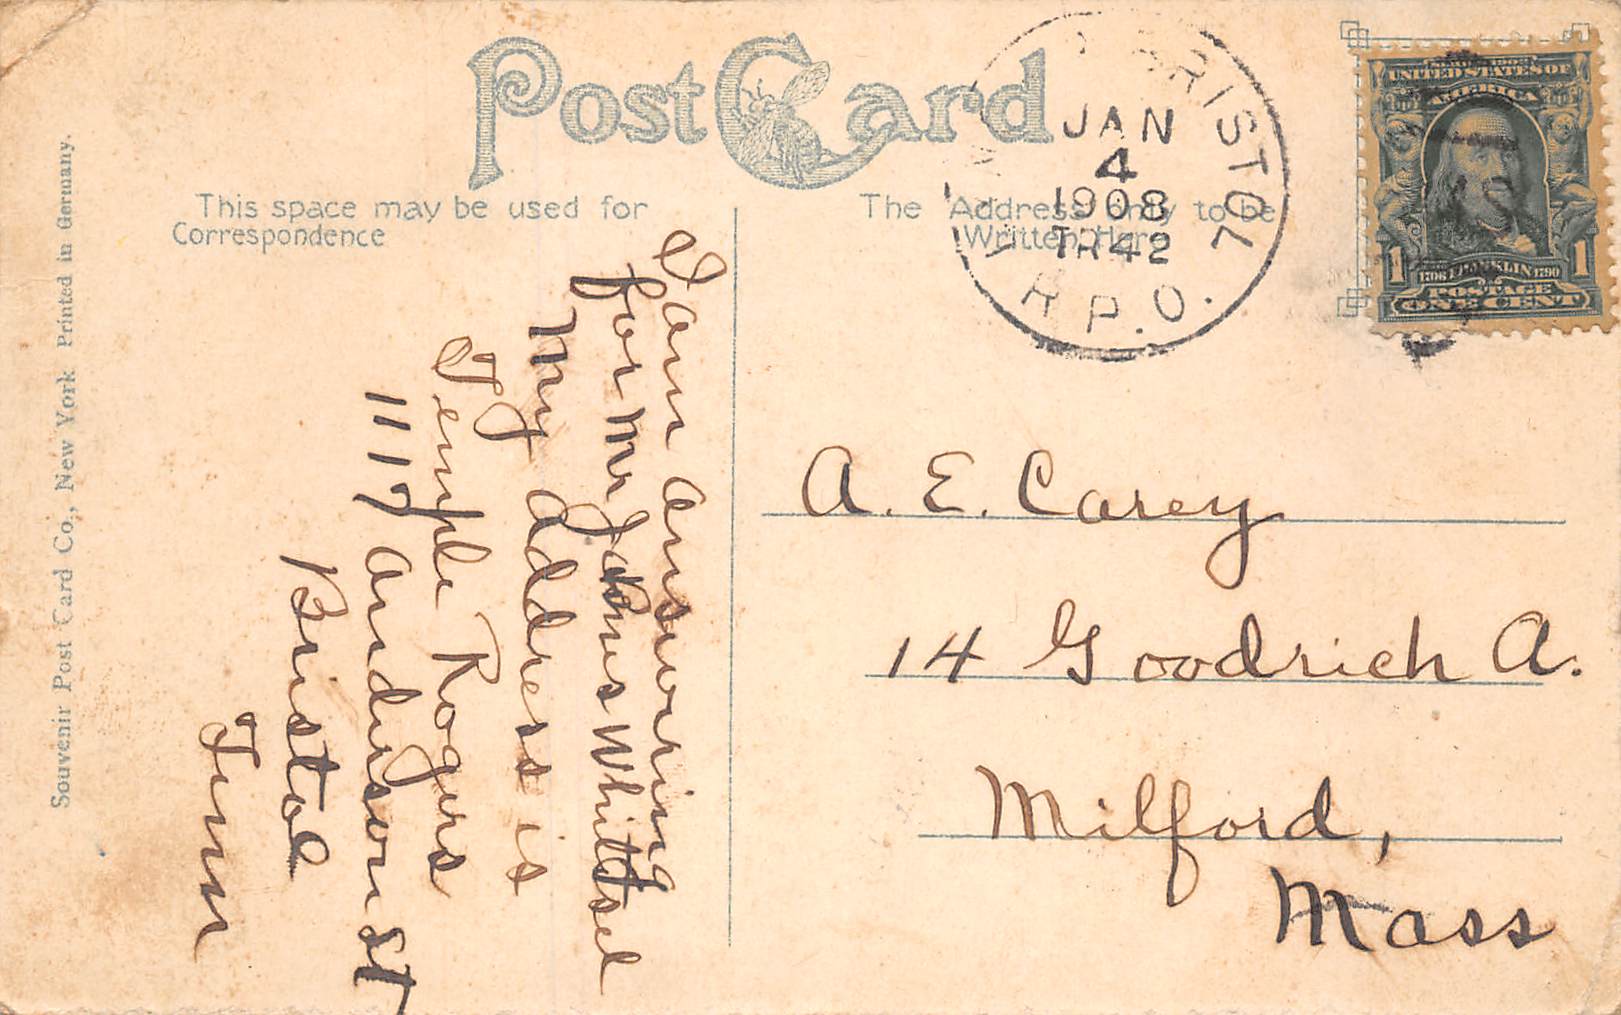 Post Card
This space may be used for
Correspondence
The Address only to be
Written Here
BRISTOL
JAN
4
1908
TR 42
R.P.O.
UNITED STATES OF
AMERICA
1 1706 FRANKLIN 1790 1
POSTAGE
ONE CENT
I am answering
for Mr James Whittsel
My address is
Temple Rogers
1117 Anderson St
Bristol
Tenn
A. E. Carey
14 Goodrich A.
Milford,
Mass
Souvenir Post Card Co., New York Printed in Germany.